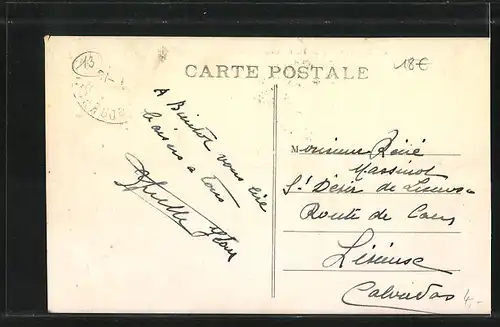 13
18€
CARTE POSTALE
A Bientôt vous lire
baisers à tous
Monsieur René
Massinot
St Désir de Lisieux
Route de Caen
Lisieux
Calvados
4,-